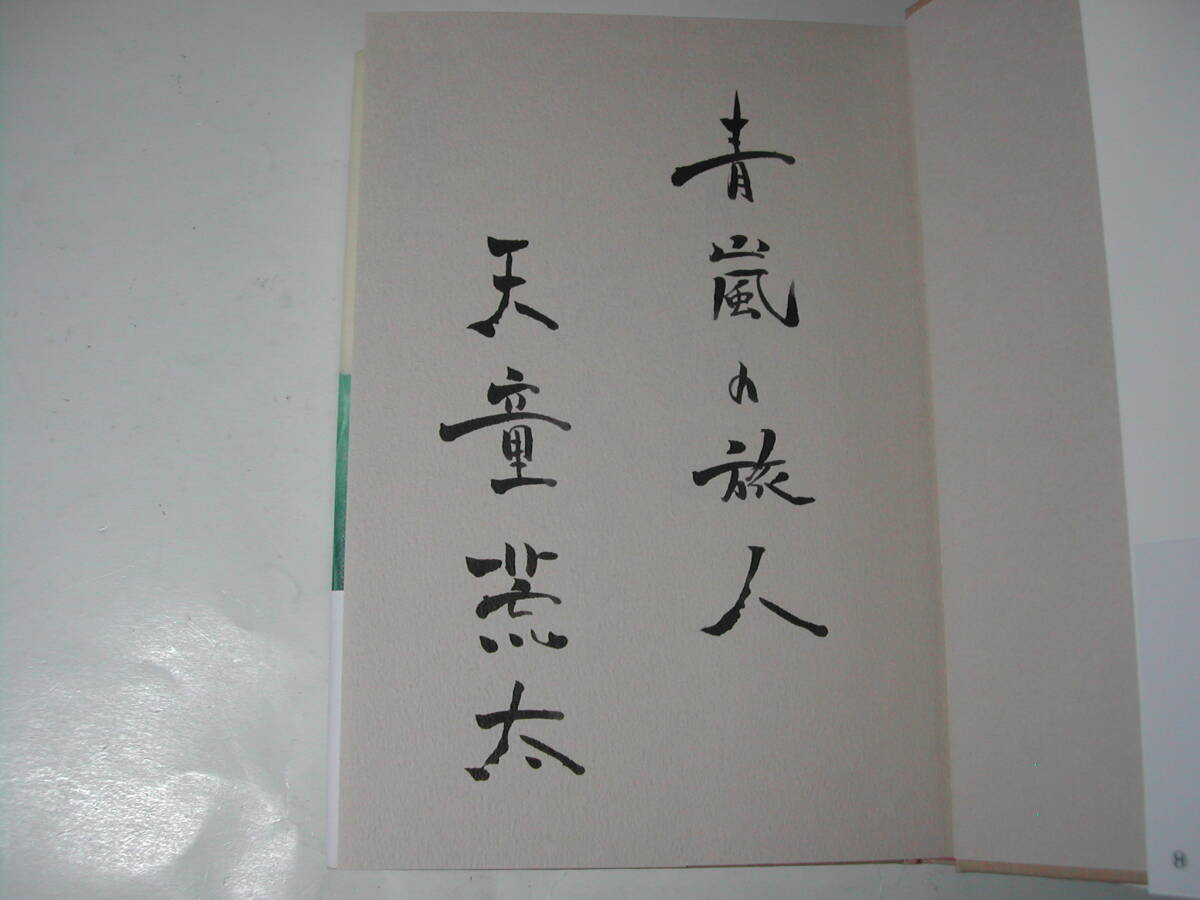 青嵐の旅人
天童荒太